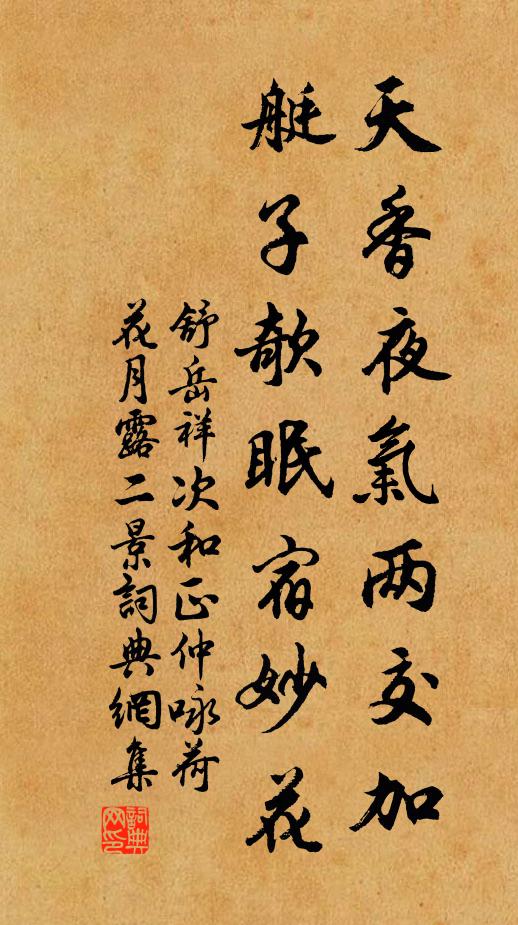 天香夜氣两交加
艇子欹眠宿妙花
舒岳祥次和正仲咏荷
花月露二景詞典網集
詞典网印